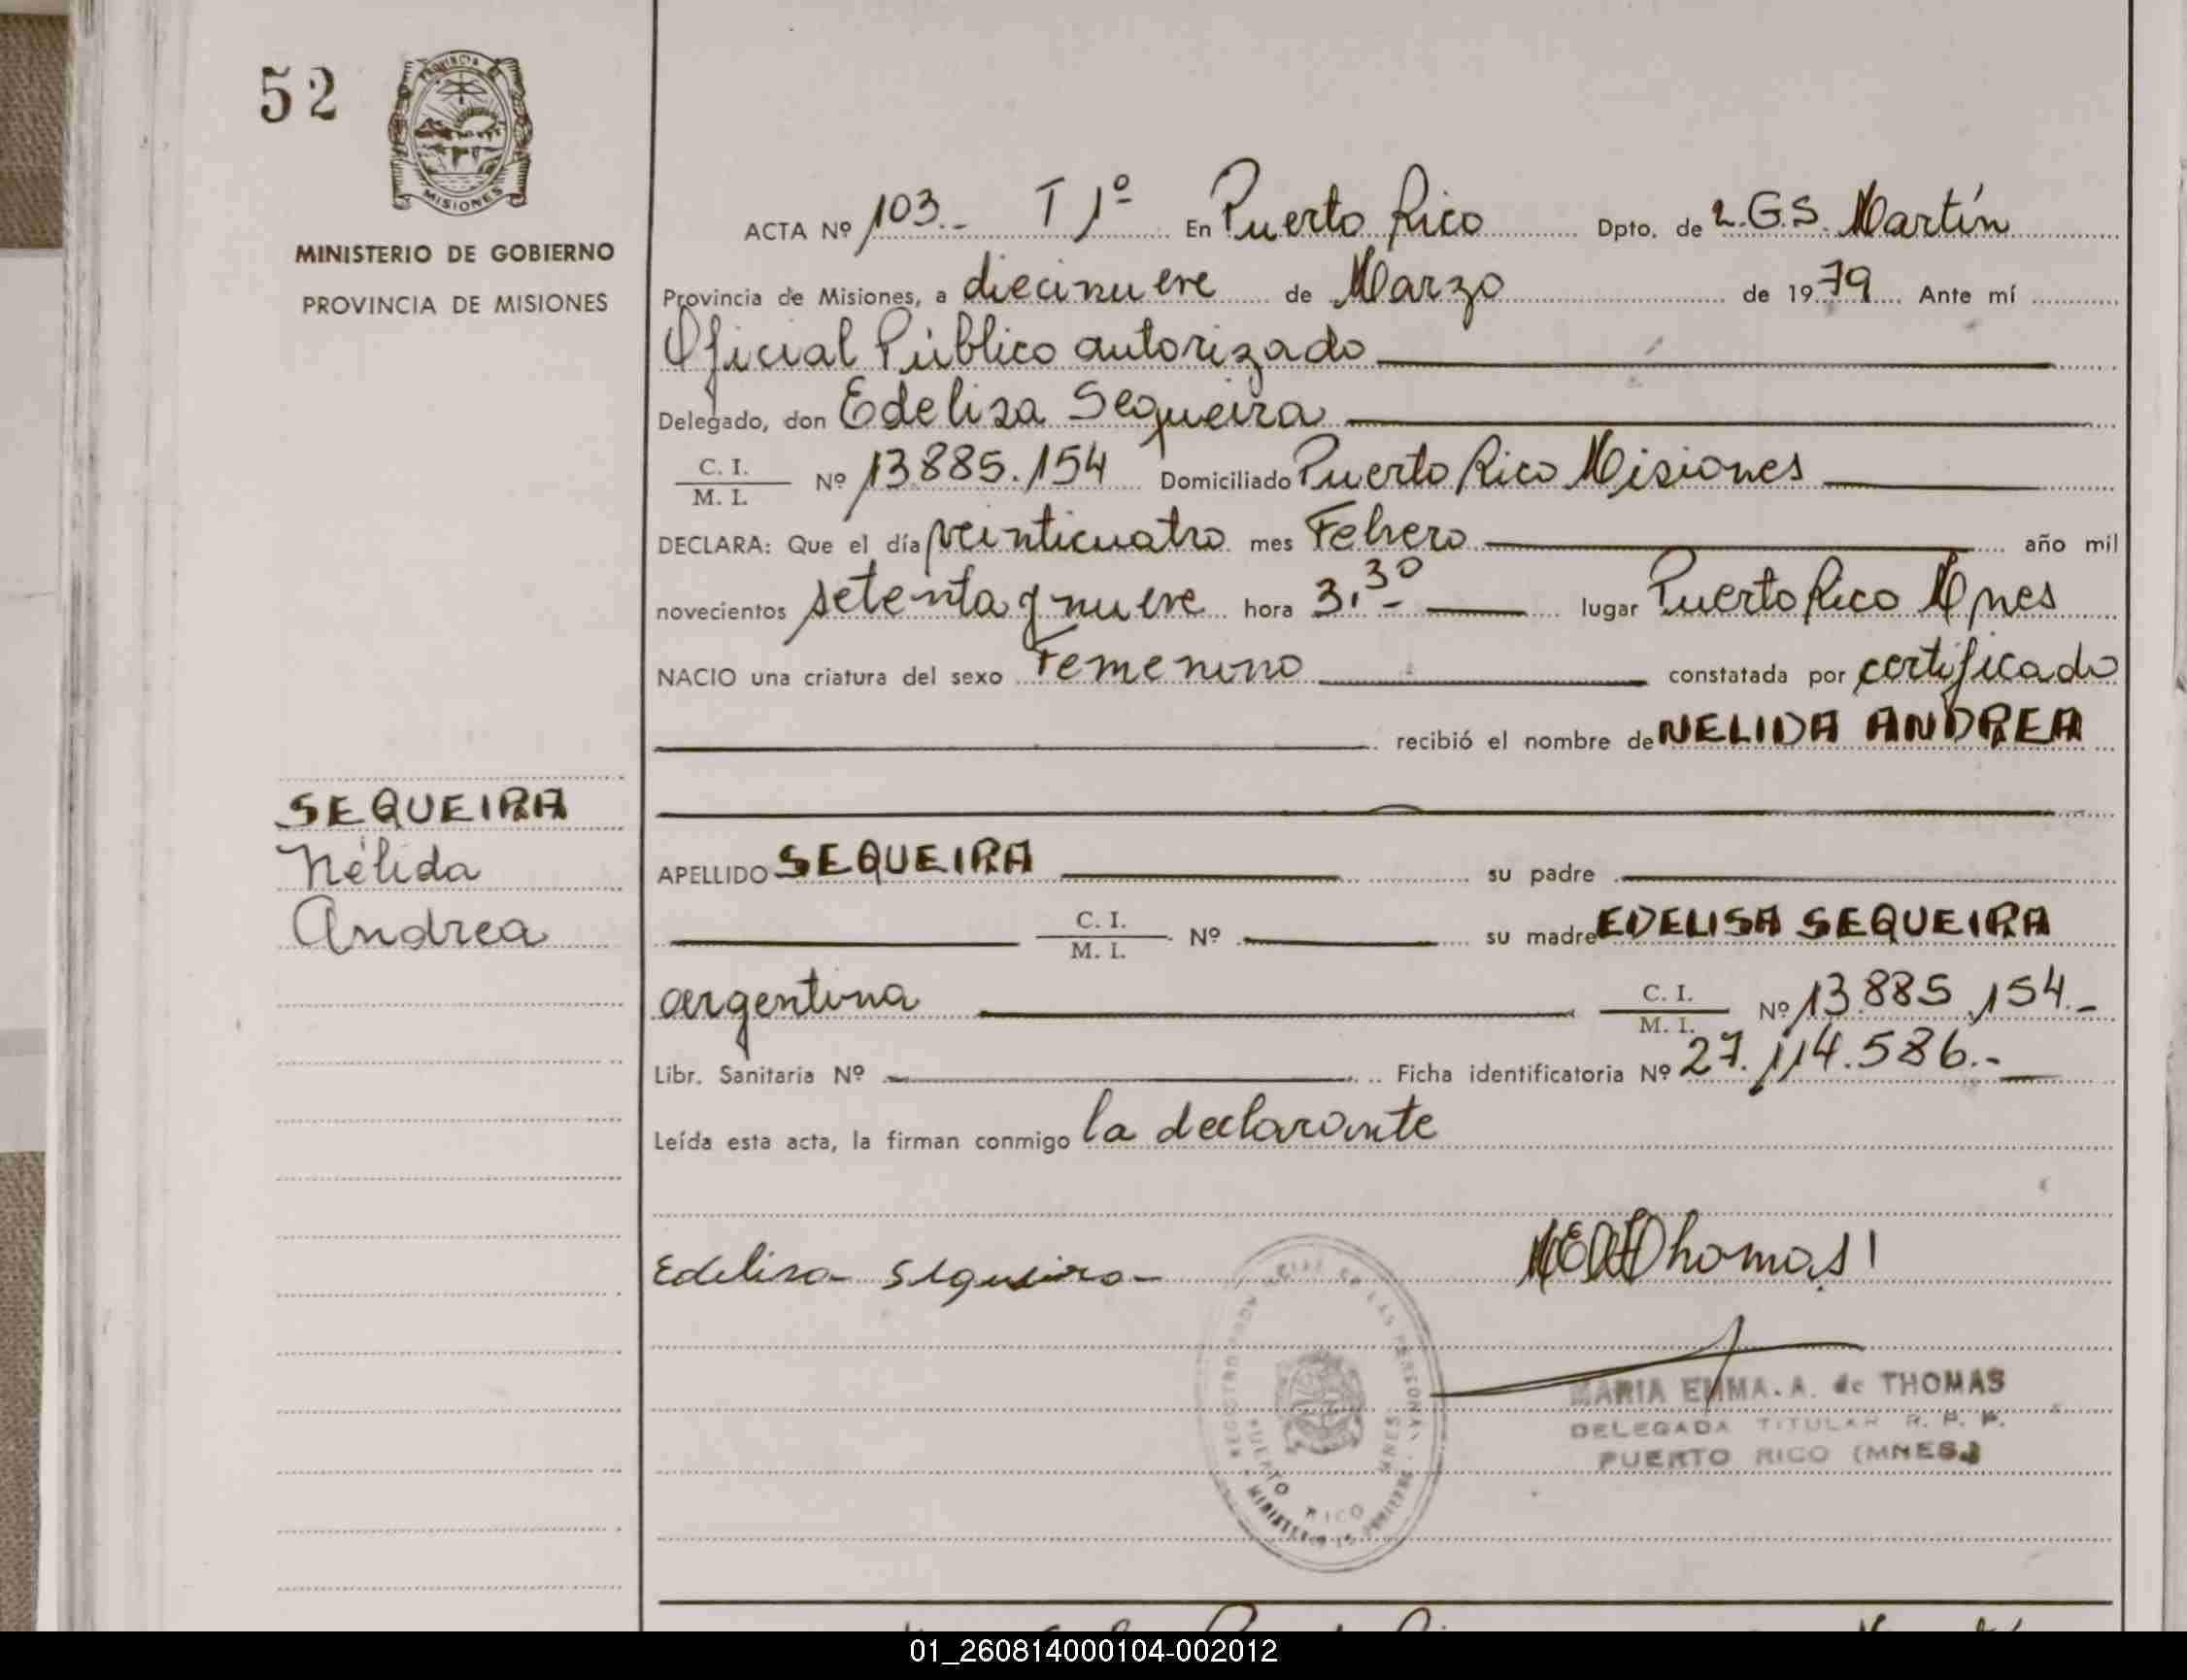 52
PROVINCIA DE
MISIONES
MINISTERIO DE GOBIERNO
PROVINCIA DE MISIONES
ACTA Nº 103.- T 1º En Puerto Rico Dpto. de L.G.S. Martín
Provincia de Misiones, a diecinueve de Marzo de 1979 Ante mí
Oficial Público autorizado
Delegado, don Edelisa Sequeira
C. I.
M. I. Nº 13.885.154 Domiciliado Puerto Rico Misiones
DECLARA: Que el día veinticuatro mes Febrero año mil
novecientos setenta y nueve hora 3.30 lugar Puerto Rico Mnes
NACIO una criatura del sexo Femenino constatada por certificado
recibió el nombre de NELIDA ANDREA
SEQUEIRA
Nélida
Andrea
APELLIDO SEQUEIRA su padre
C. I.
M. I. Nº su madre EDELISA SEQUEIRA
argentina C. I.
M. I. Nº 13.885.154.-
Libr. Sanitaria Nº Ficha identificatoria Nº 27.114.586.-
Leída esta acta, la firman conmigo la declarante
Edelisa Sequeira
Thomas
MARIA EMMA. A. de THOMAS
DELEGADA TITULAR R. P. P.
PUERTO RICO (MNES.)
DE LAS PERSONAS
PUERTO RICO MNES
01_260814000104-002012